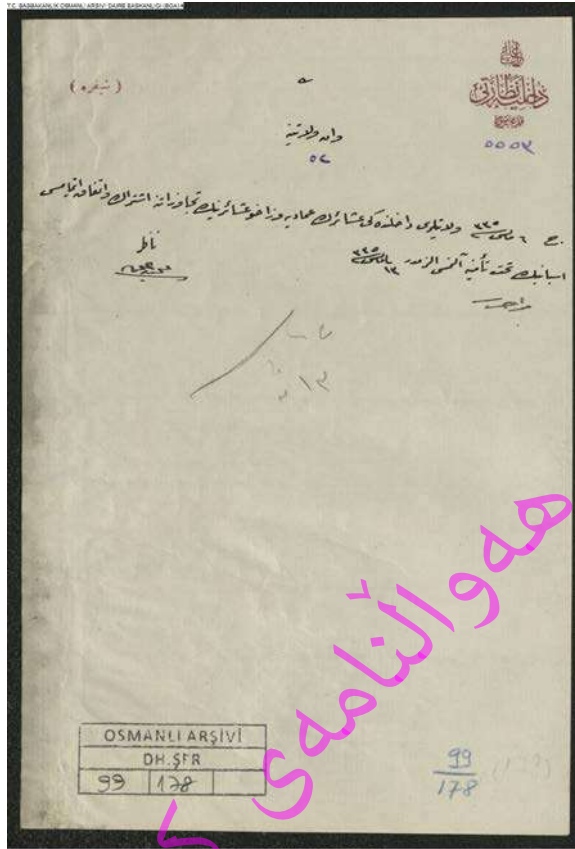 T.C. BAŞBAKANLIK OSMANLI ARŞİVİ DAİRE BAŞKANLIĞI (BOA)
( شفره )
داخلیه نظارتی
وان ولایتنه
٥٢
ج ٦ مایس ٣٣٥ ولایتلری داخلنده کی عشائرك عمادیه و زاخو عشائرینك تجاوزاتنه اشتراك و اتفاق ایتمامسی
اسبابنك تحت تأمینه آلنمسی الزمدر ١٣ مایس ٣٣٥
ناظر
١٣
هەواڵنامەی ک
OSMANLI ARŞİVİ
DH.ŞFR
99 178
99
178
(178)